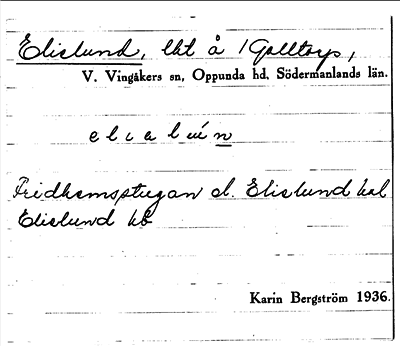 Elislund, lht å 1 Galltorp,
V. Vingåkers sn, Oppunda hd, Södermanlands län.
Fridhemsstugan el. Elislund kal
Elislund kb
Karin Bergström 1936.